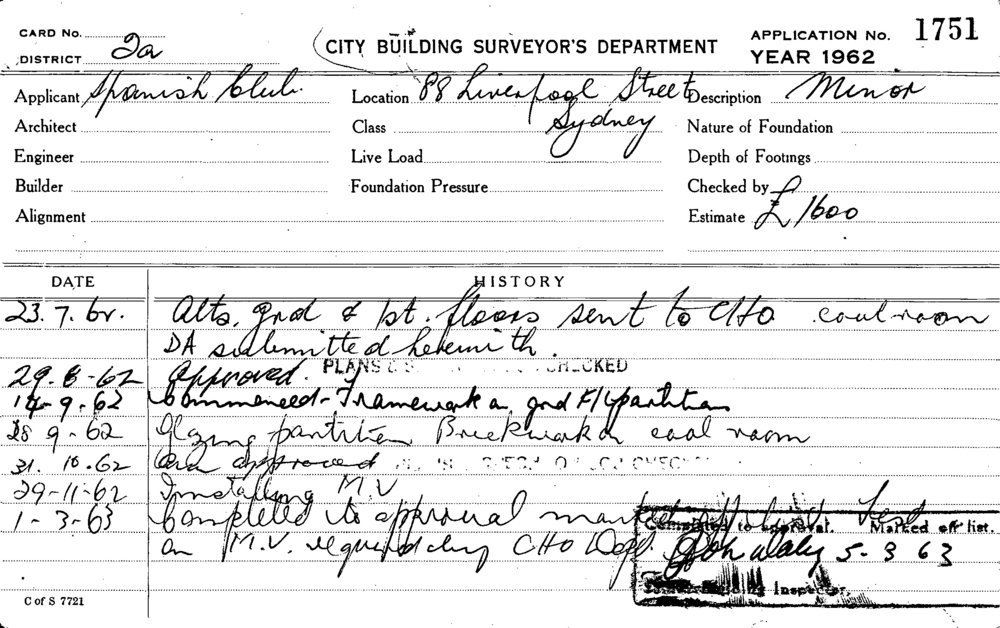 CARD No.
DISTRICT 2a
CITY BUILDING SURVEYOR'S DEPARTMENT
APPLICATION No. 1751
YEAR 1962
Applicant Spanish Club.
Location 88 Liverpool Street Sydney
Description Minor
Architect
Class
Nature of Foundation
Engineer
Live Load
Depth of Footings
Builder
Foundation Pressure
Checked by
Alignment
Estimate £1600
DATE HISTORY
23.7.62. Alts. grd & 1st. floors sent to CHO coal room
DA submitted herewith.
29-8-62 Approved. PLANS CHECKED
14-9-62 Commenced - Framework on grd Fl partition
28 9-62 Glazing partition Brickwork on coal room
31. 10.62 approved
29-11-62 Installing M.V
1-3-63 Completed to approval list Test
on M.V. required by CHO Dept.
Completed to approval. Marked off list.
5-3 63
Building Inspector.
C of S 7721